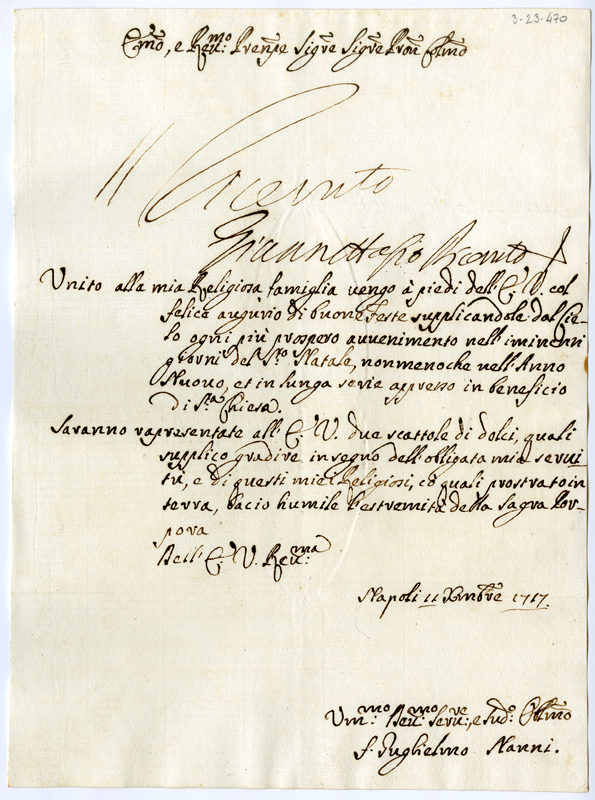 3-23-470
Em̃o, e Reu:mo Prenpe Sigre Sigre Pron Col̃mo
Riceuuto
Unito alla mia Religiosa famiglia uengo à piedi dell' E. V. col
felice augurio di buone feste supplicandole dal Cie-
lo ogni più prospero auuenimento nell' iminenti
giorni del S.to Natale, nonmenoche nell' Anno
Nuouo, et in lunga serie appresso in beneficio
di S.ta Chiesa.
Saranno rapresentate all' E. V. due scattole di dolci, quali
supplico gradire in segno dell' obligata mia serui-
tù, e di questi miei Religiosi, cò quali prostrato in
terra, bacio humile l'estremità della sagra Por-
pora
Dell' E. V. Reu:ma
Napoli 11 Xmbre 1717.
Um:mo Deu:mo Seru:re, e Sud:o Obl̃mo
f. Guglielmo Nanni.